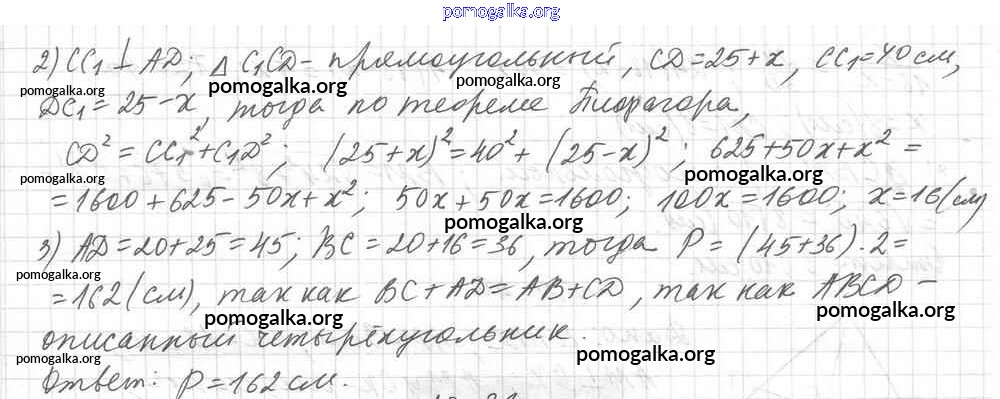 pomogalka.org
2) CC₁ ⊥ AD; Δ C₁CD - прямоугольный, CD = 25 + x, CC₁ = 40 см,
pomogalka.org pomogalka.org pomogalka.org
DC₁ = 25 - x, тогда по теореме Пифагора,
pomogalka.org
CD² = CC₁² + C₁D²; (25 + x)² = 40² + (25 - x)²; 625 + 50x + x² =
pomogalka.org pomogalka.org
= 1600 + 625 - 50x + x²; 50x + 50x = 1600; 100x = 1600; x = 16 (см)
pomogalka.org
3) AD = 20 + 25 = 45; BC = 20 + 16 = 36, тогда P = (45 + 36) · 2 =
pomogalka.org
= 162 (см), так как BC + AD = AB + CD, так как ABCD -
pomogalka.org pomogalka.org
описанный четырёхугольник.
pomogalka.org pomogalka.org
Ответ: P = 162 см.